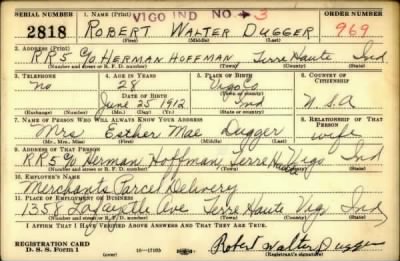 SERIAL NUMBER 1. NAME (Print) VIGO IND NO → 3 ORDER NUMBER
2818 ROBERT WALTER DUGGER 969
(First) (Middle) (Last)
2. ADDRESS (Print)
RR5 C/O HERMAN HOFFMAN Terre Haute Ind
(Number and street or R. F. D. number) (Town) (County) (State)
3. TELEPHONE 4. AGE IN YEARS 5. PLACE OF BIRTH 6. COUNTRY OF CITIZENSHIP
No 28 Vigo Co.
DATE OF BIRTH
June 25 1912 Ind U.S.A
(Exchange) (Number) (Mo.) (Day) (Yr.) (State or country)
7. NAME OF PERSON WHO WILL ALWAYS KNOW YOUR ADDRESS 8. RELATIONSHIP OF THAT PERSON
Mrs Esther Mae Dugger wife
(Mr., Mrs., Miss) (First) (Middle) (Last)
9. ADDRESS OF THAT PERSON
RR5 C/o Herman Hoffman, Terre Haute Vigo Ind
(Number and street or R. F. D. number) (Town) (County) (State)
10. EMPLOYER'S NAME
Merchants Parcel Delivery
11. PLACE OF EMPLOYMENT OR BUSINESS
1358 Lafayette Ave Terre Haute Vigo Ind
(Number and street or R. F. D. number) (Town) (County) (State)
I AFFIRM THAT I HAVE VERIFIED ABOVE ANSWERS AND THAT THEY ARE TRUE.
REGISTRATION CARD
D. S. S. Form 1 Robert Walter Dugger
(Registrant's signature)